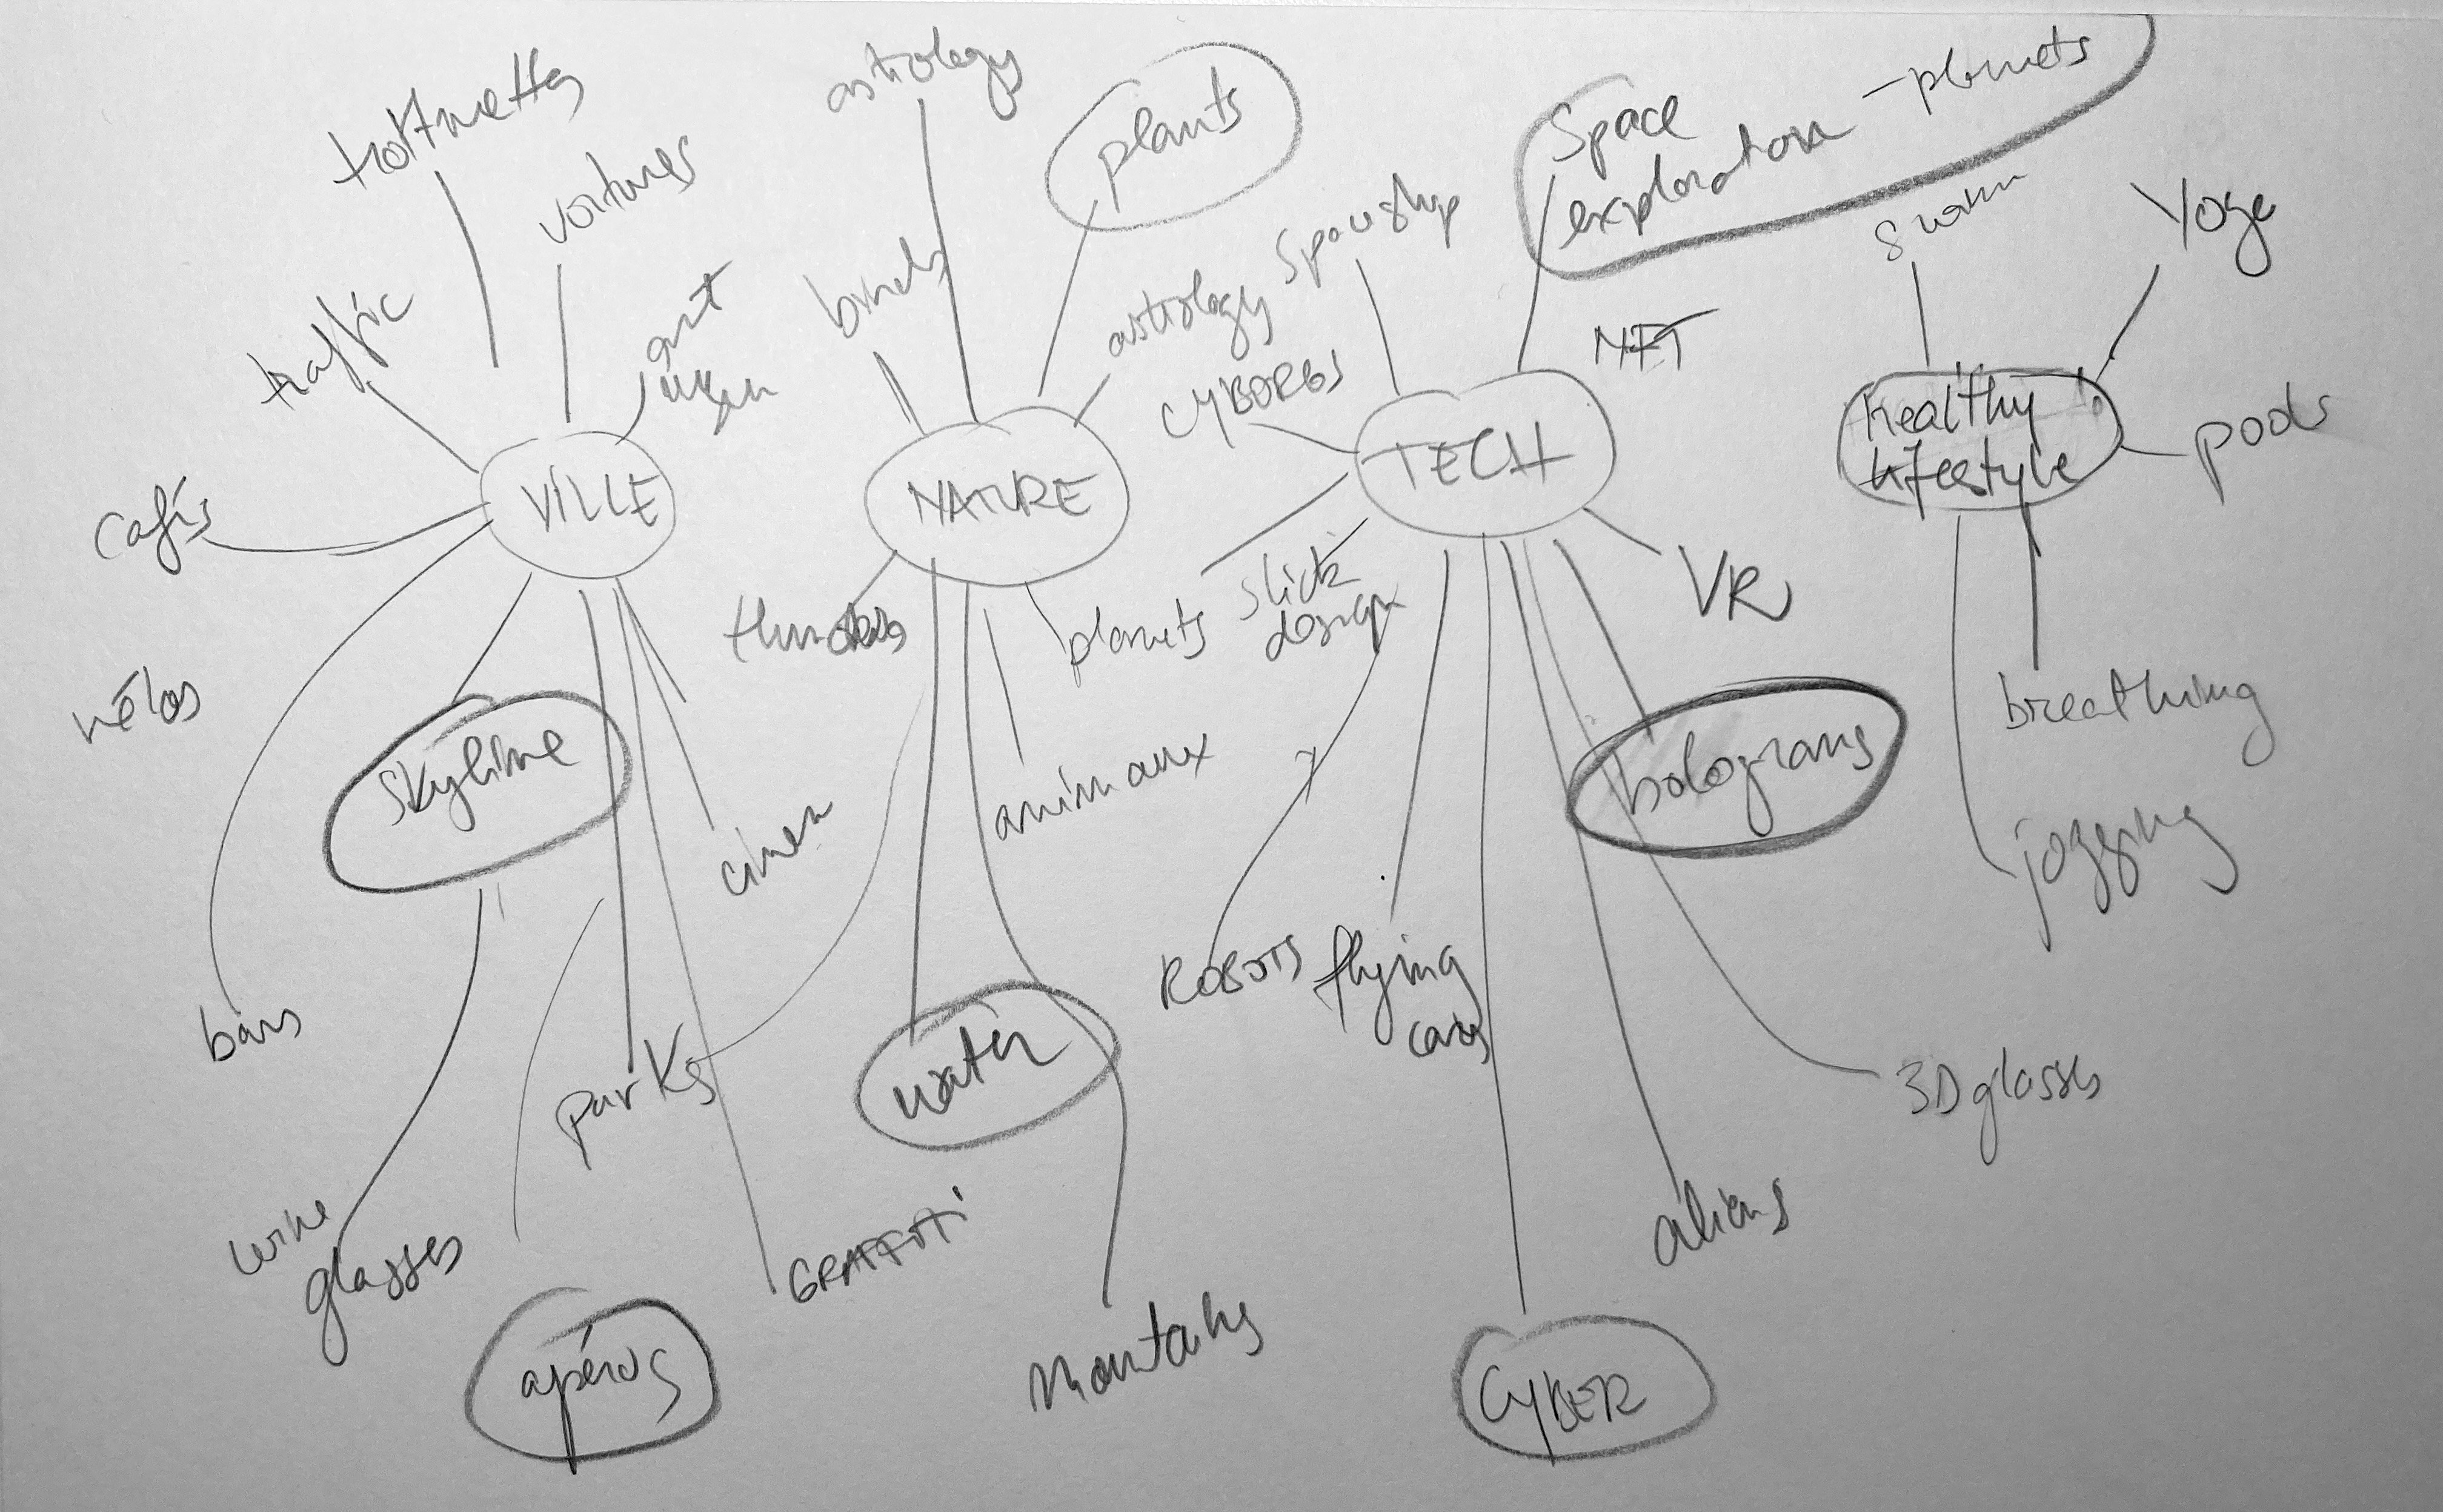 astrology
plants
Space
exploration - planets
voitures
traffic
art
birds
astrology
Spaceship
CYBORGS
NFT
Yoga
VILLE
NATURE
TECH
healthy
lifestyle
pods
Cafés
vélos
planets
slick
design
VR
skyline
animaux
holograms
breathing
jogging
bars
parks
water
ROBOTS
flying
cars
3D glasses
wine
glasses
GRAFFITI
aliens
apéros
Mountains
CYBER